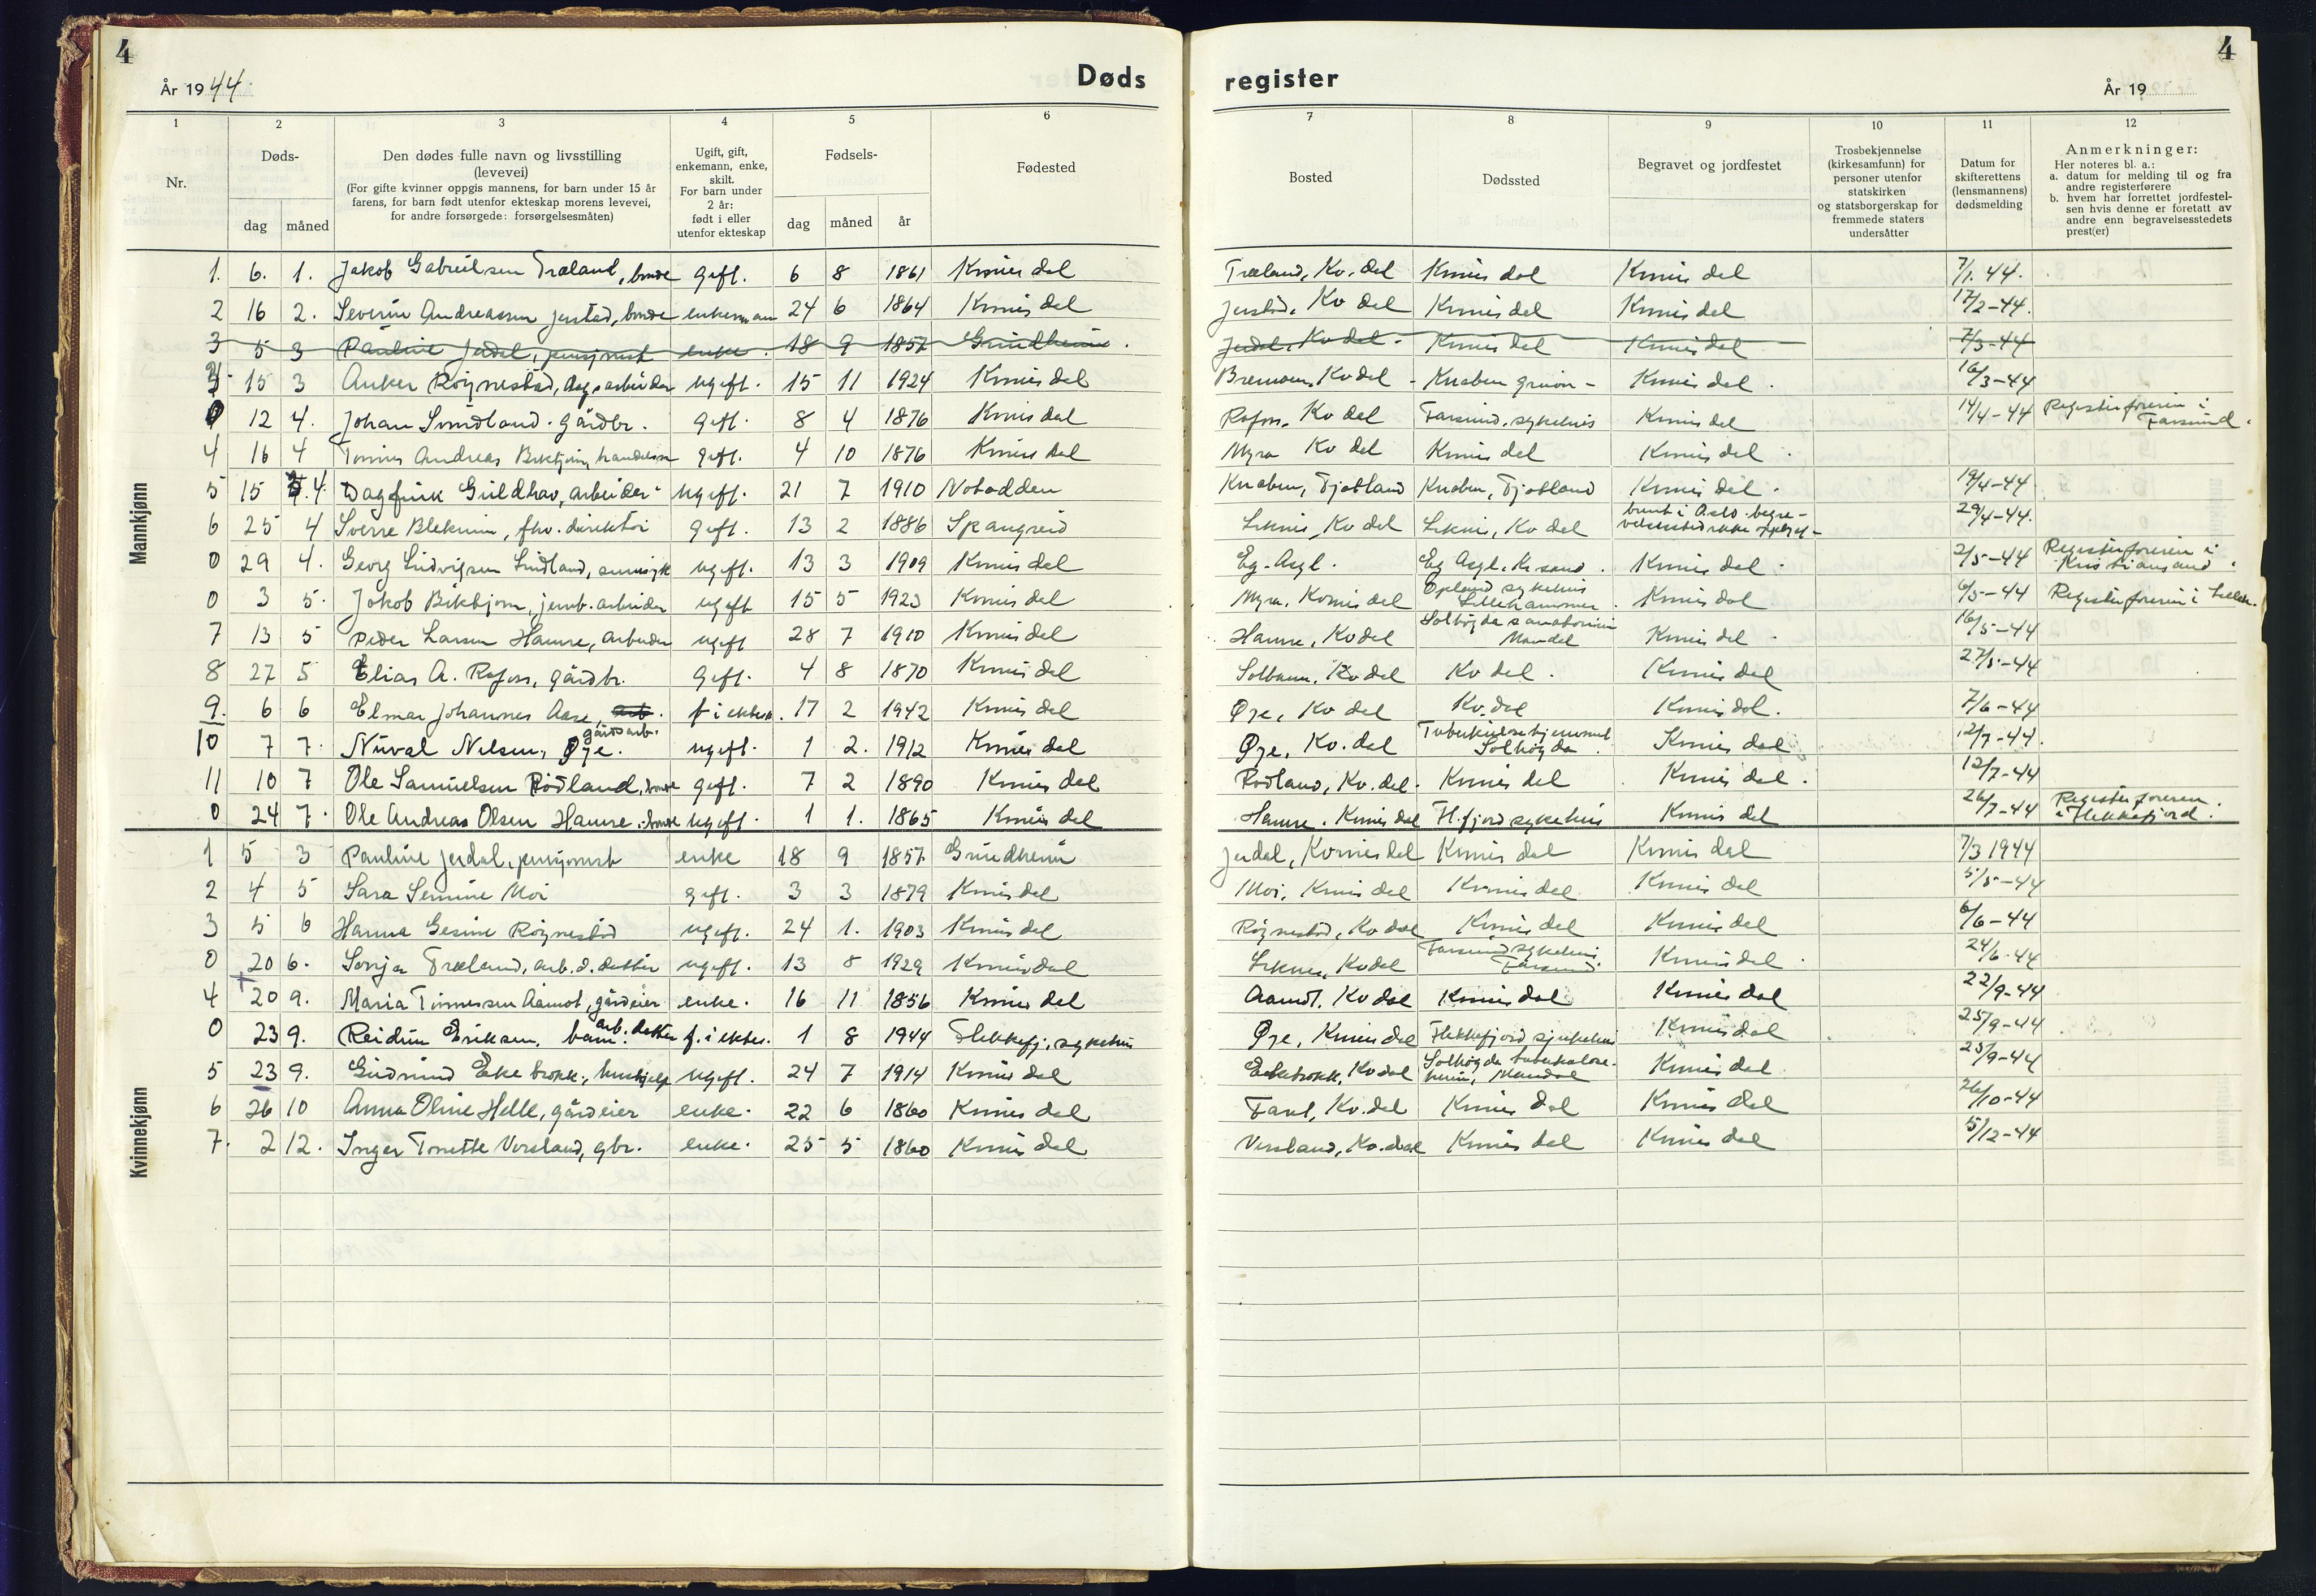 4
År 1944.
Døds
register
4
År 19
1 2 3 4 5 6 7 8 9 10 11 12
Nr.
Døds-
dag måned
Den dødes fulle navn og livsstilling
(levevei)
(For gifte kvinner oppgis mannens, for barn under 15 år
farens, for barn født utenfor ekteskap morens levevei,
for andre forsørgede: forsørgelsesmåten)
Ugift, gift,
enkemann, enke,
skilt.
For barn under
2 år:
født i eller
utenfor ekteskap
Fødsels-
dag måned år
Fødested
Bosted
Dødssted
Begravet og jordfestet
Trosbekjennelse
(kirkesamfunn) for
personer utenfor
statskirken
og statsborgerskap for
fremmede staters
undersåtter
Datum for
skifterettens
(lensmannens)
dødsmelding
Anmerkninger:
Her noteres bl. a.:
a. datum for melding til og fra
andre registerførere
b. hvem har forrettet jordfestel-
sen hvis denne er foretatt av
andre enn begravelsesstedets
prest(er)
Mannkjønn
1. 6. 1. Jakob Gabrielsen Træland, bonde gift. 6 8 1861 Kvinesdal Træland, Kv. dal Kvinesdal Kvinesdal 7/1. 44.
2 16 2. Severin Andreassen Jerstad, bonde enkemann 24 6 1864 Kvinesdal Jerstad, Kv dal Kvinesdal Kvinesdal 17/2-44.
3 5 3 Pauline Jerdal, pensjonist enke. 18 9 1857 Grindheim. Jerdal, Kv dal. Kvinesdal Kvinesdal 7/3-44
3 15 3 Anker Röynestad, dagarbeider ugift. 15 11 1924 Kvinesdal Bremoen, Kvdal - Knaben gruver - Kvinesdal. 16/3-44
0 12 4. Johan Svindland. gårdbr. gift. 8 4 1876 Kvinesdal Rafoss, Kv dal Farsund, sykehus Kvinesdal 14/4-44 Registerføreren i Farsund.
4 16 4 Tønnes Andreas Birkljern, handelsm gift. 4 10 1876 Kvinesdal Myra Kv dal Kvinesdal Kvinesdal
5 15 4. Dagfinn Guldhav, arbeider ugift. 21 7 1910 Notodden Knaben, Fjotland Knaben, Fjotland Kvinesdal. 19/4-44
6 25 4 Sverre Blekum, fhv. direktør gift. 13 2 1886 Spangreid Leknes, Kv dal Leknes, Kv dal brent i Oslo. begra-
velsessted ikke oppgit- 29/4-44.
0 29 4. Georg Ludvigsen Lindland, sinnsyk ugift. 13 3 1909 Kvinesdal Eg. Asyl. Eg Asyl. Kr. sand. Kvinesdal. 2/5-44 Registerføreren i Kristiansand.
0 3 5. Jakob Birkljern, jernb. arbeider ugift 15 5 1923 Kvinesdal Myra, Kvinesdal Opland sykehus Lillehammer. Kvinesdal 6/5-44 Registerføreren i Lilleh.
7 13 5 Peder Larsen Hamre, arbeider ugift 28 7 1910 Kvinesdal Hamre, Kvdal Solhøgda sanatorium Mandal Kvinesdal 16/5-44
8 27 5 Elias A. Rafoss, gårdbr. gift. 4 8 1870 Kvinesdal Solbaum, Kv dal Kv dal. Kvinesdal 27/5-44
9. 6 6 Elmar Johannes Aase, arb. f. i ektesk. 17 2 1942 Kvinesdal Øye, Kv dal Kv. dal Kvinesdal. 7/6-44
10 7 7. Norval Nelsen, Øye. gårdsarb. ugift. 1 2. 1912 Kvinesdal Øye, Kv. dal Tuberkulosehjemmet Solhøgda. Kvinesdal 12/7-44.
11 10 7 Ole Samuelsen Rödland, bonde gift. 7 2 1890 Kvinesdal Rödland, Kv. dal. Kvinesdal Kvinesdal. 12/7-44
0 24 7. Ole Andreas Olsen Hamre, bonde ugift. 1 1. 1865 Kvinesdal Hamre. Kvinesdal Fl. fjord sykehus Kvinesdal 26/7-44 Registerføreren i Flekkefjord.
Kvinnekjønn
1 5 3 Pauline Jerdal, pensjonist enke 18 9 1857 Grindheim Jerdal, Kvinesdal Kvinesdal Kvinesdal 7/3 1944
2 4 5 Sara Semine Moi gift. 3 3 1879 Kvinesdal Moi, Kvinesdal Kvinesdal Kvinesdal 5/5-44
3 5 6 Hanna Gesine Röynestad ugift. 24 1. 1903 Kvinesdal Röynestad, Kv dal Kvinesdal Kvinesdal 6/6-44
0 20 6. Sonja Træland, arb. d. datter ugift. 13 8 1929 Kvinesdal Leknes, Kvdal Farsund sykehus Farsund. Kvinesdal 24/6-44
4 20 9. Maria Tönnessen Aamot, gårdeier enke. 16 11 1856 Kvinesdal Aamot. Kv dal Kvinesdal Kvinesdal 22/9-44
0 23 9. Reidun Eriksen, barn. arb. datter f. i ektes. 1 8 1944 Flekkefj. sykehus Øye, Kvinesdal Flekkefjord sjukehus Kvinesdal 25/9-44
5 23 9. Gudrund Eke brokk, hushjelp ugift. 24 7 1914 Kvinesdal Ekebrokk, Kv dal Solhøgda tuberkulose-
heim, Mandal Kvinesdal 25/9-44
6 26 10 Anna Oline Helle, gårdeier enke. 22 6 1860 Kvinesdal Faret, Kv. dal Kvinesdal Kvinesdal 26/10-44
7. 2 12. Inger Tonette Versland, gbr. enke. 25 5 1860 Kvinesdal Versland, Kv. dal Kvinesdal Kvinesdal 5/12-44